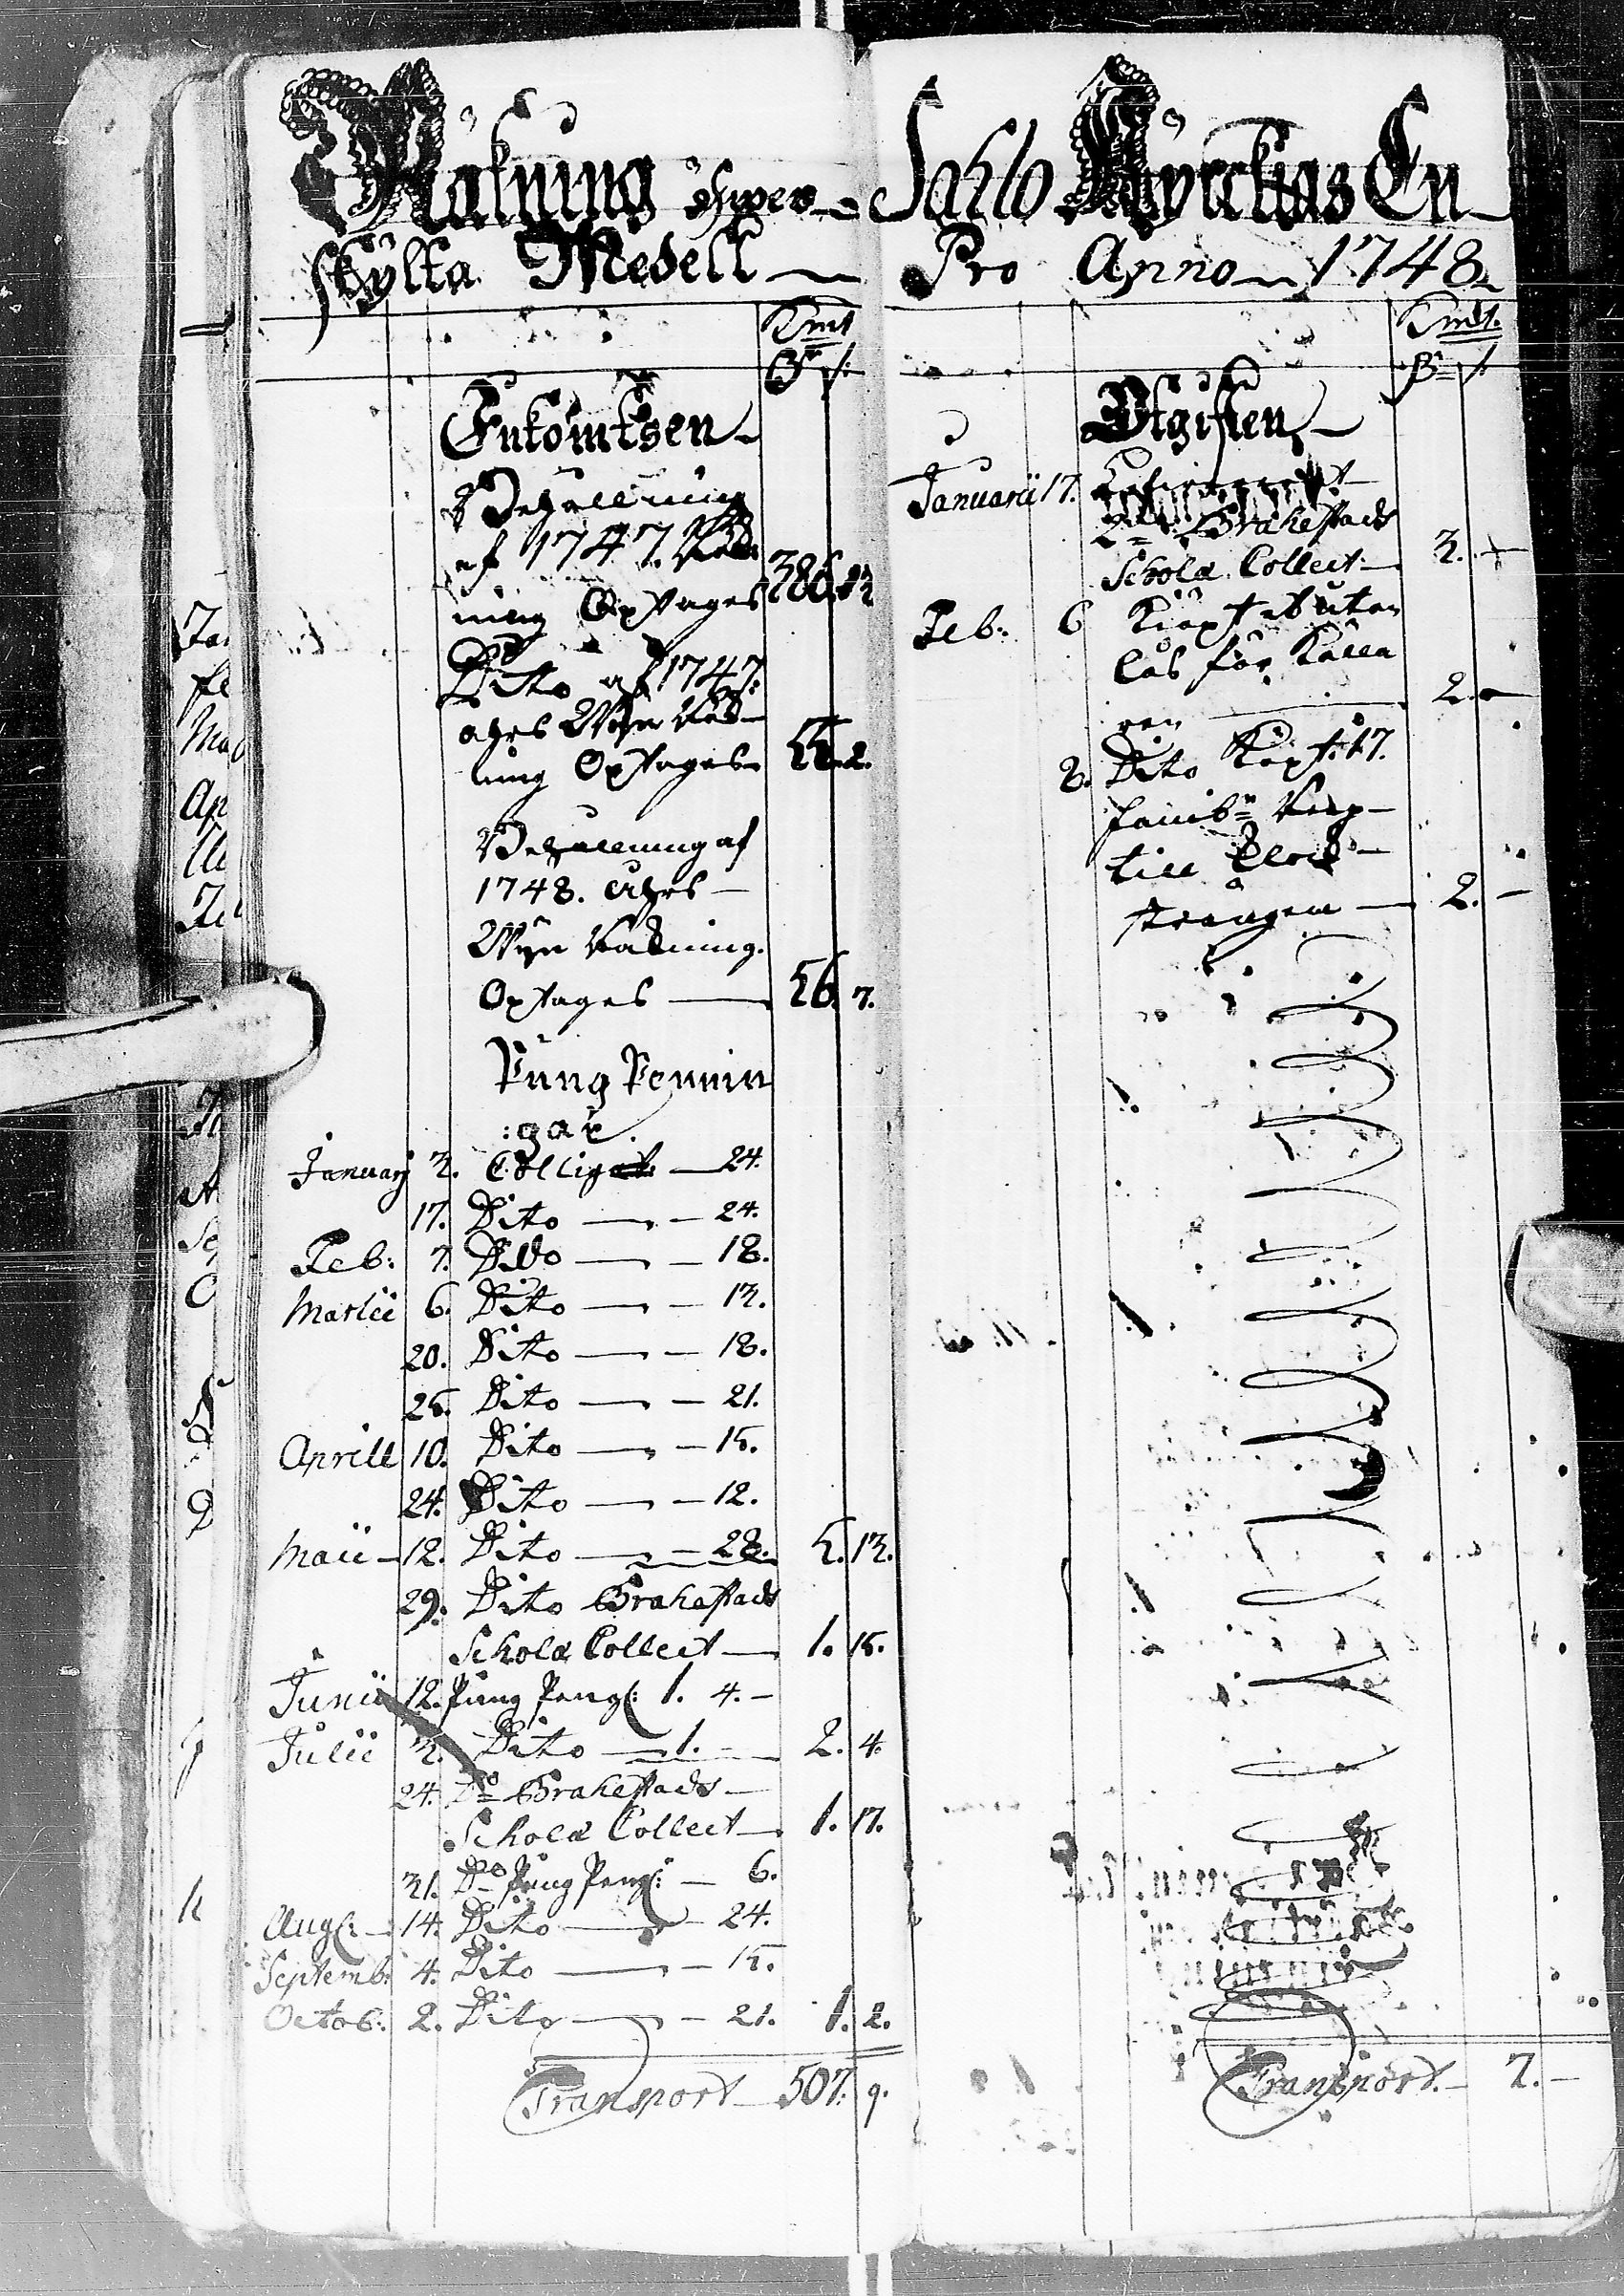 Räkning öfwer Sahlo Kyrckias En
skylta Medell Pro Anno 1748
Kmt
Dr /:
Inkomtsen
Behallning
af 1747. Räk
ning Optages 386. 13
Dito af 1747:
ahrs Wyn Räk
ning Optages 55. 2.
Behallning af
1748. Ahrs
Wyn Räkning.
Optages 56. 7.
Pung Pennin
:gar.
January 3. Colligat 24.
17. Dito 24.
Feb: 7. Dito 18.
Martii 6. Dito 13.
20. Dito 18.
25. Dito 21.
Aprill 10. Dito 15.
24. Dito 12.
Maii 12. Dito 28. 5. 13.
29. Dito Brahestads
Schola Collect 1. 15.
Junii 12. Pung Peng: 1. 4.
Julii 3. Dito 1. 2. 4.
24. Do Brahestads
Schola Collect 1. 17.
31. Do Pung Peng: 6.
Aug: 14. Dito 24.
Septemb: 4. Dito 15.
Octob: 2. Dito 21. 1. 2.
Transport 507. 9.
Kmt.
Dr /:
Utgiften
Januarii 17.
Brahestads
Schola Collect 3.
Feb: 6 Kiöpt utan
lås för Källa
ren 2.
8. Dito Köpt 17.
famb:r Rep
till Clock
strängen 2.
Transport. 7.